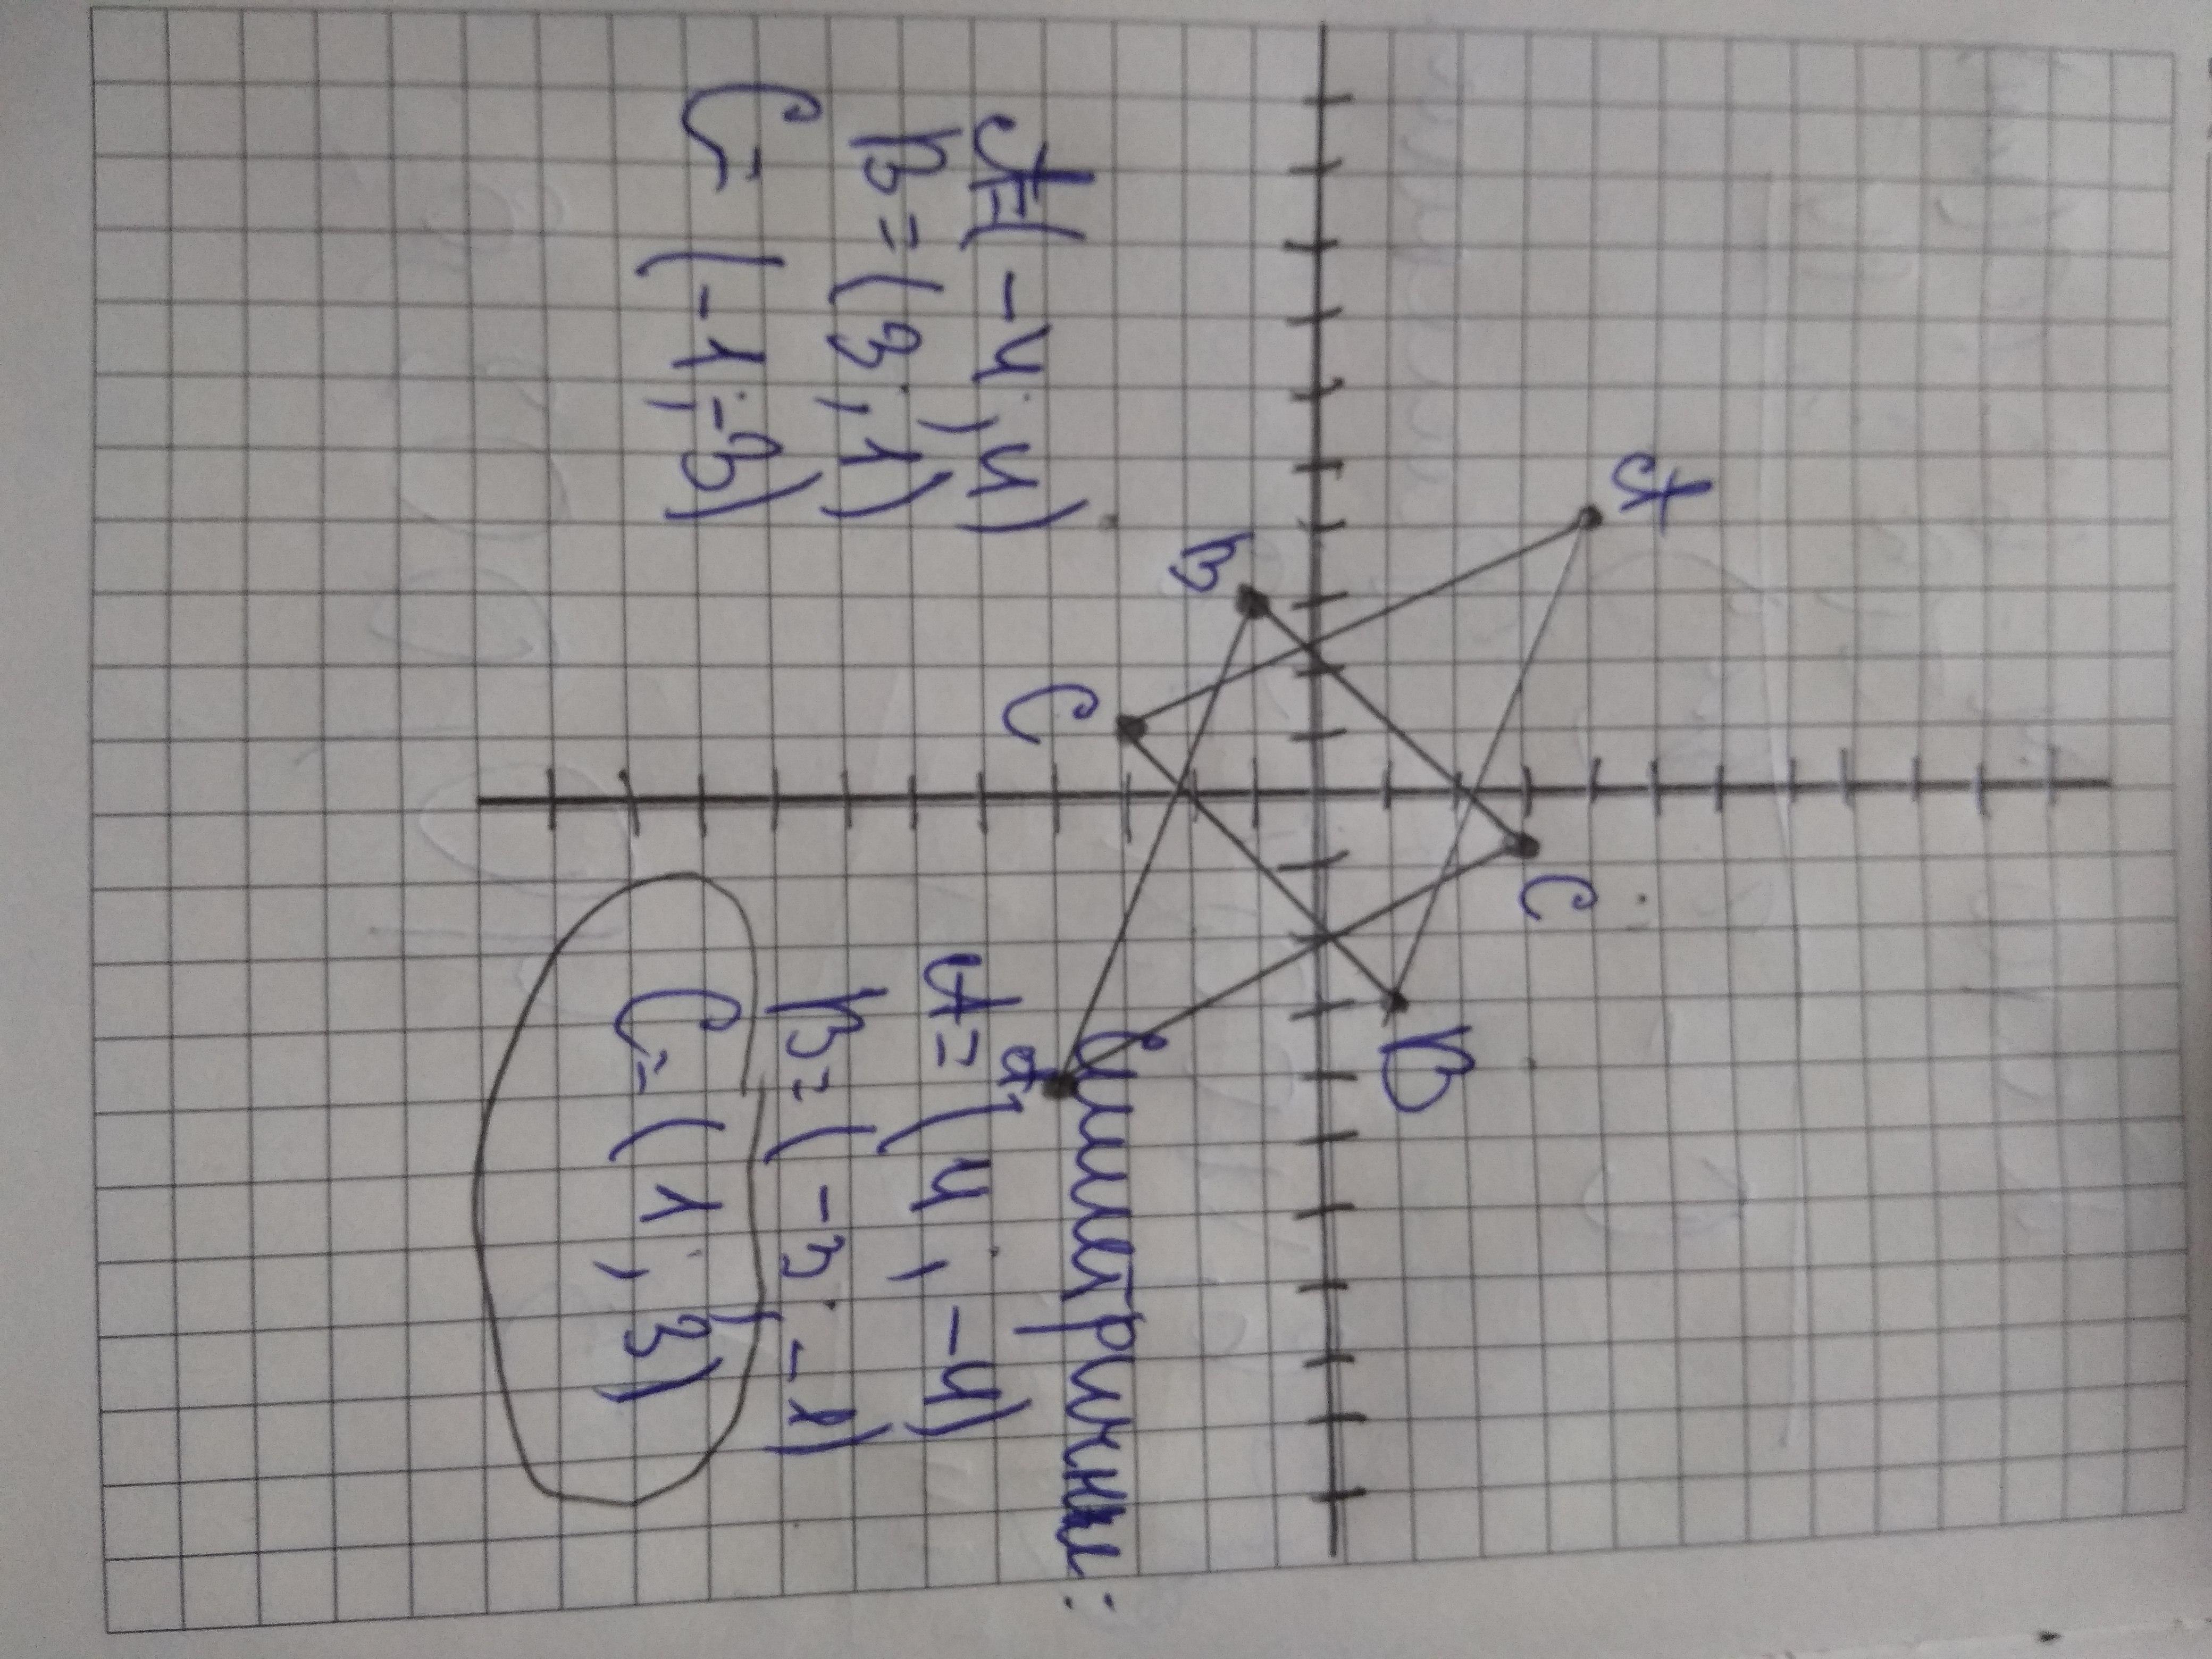 A
B
C
C
B
A
A=(-4;4)
B=(3;1)
C=(-1;-3)
Симетричне:
A=(4;-4)
B=(-3;-1)
C=(1;3)